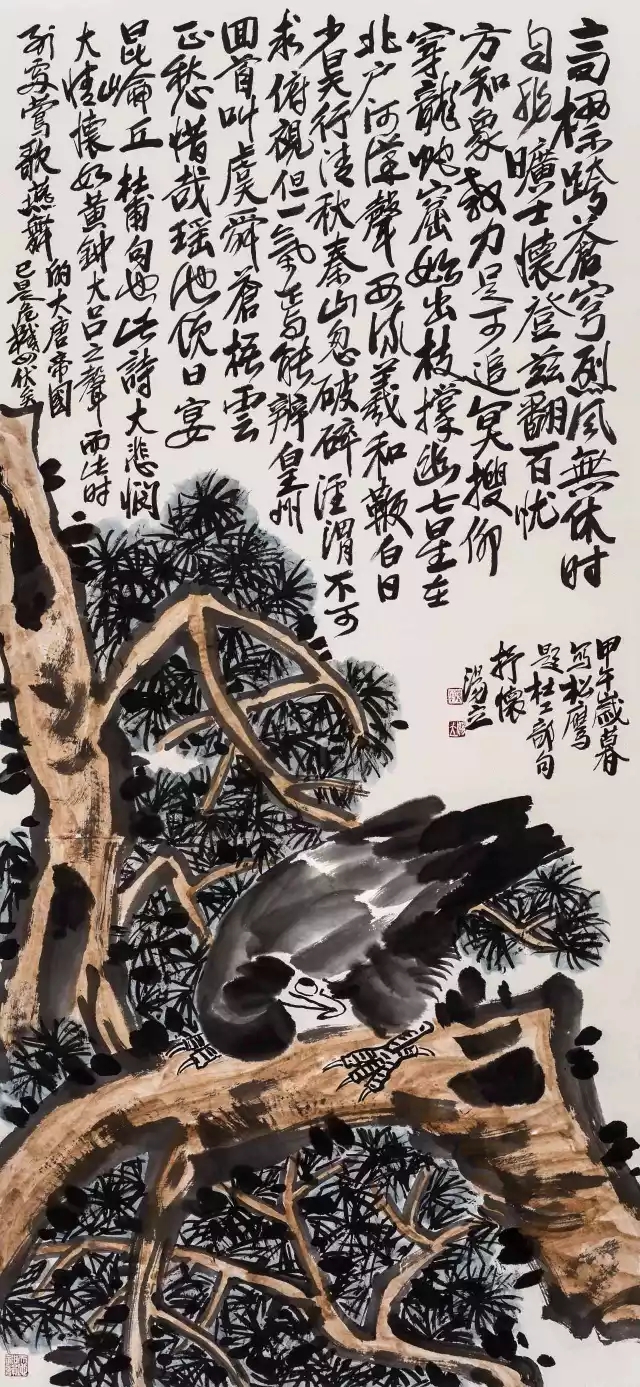 高標跨蒼穹烈风無休时
自非曠士懷登兹翻百忧
方知象教力足可追冥搜仰
穿龍蛇窟始出枝撐幽七星在
北户河漢聲西流羲和鞭白日
少昊行清秋秦山忽破碎涇渭不可
求俯視但一氣焉能辨皇州
回首叫虞舜蒼梧雲
正愁惜哉瑶池饮日宴
昆崙丘杜甫句也此詩大悲憫
大情懷如黄鐘大吕之聲而此时
到處鶯歌燕舞
的大唐帝國
已是危機四伏矣
甲午歲暮
寫松鷹
題杜工部句
抒懷
湯立